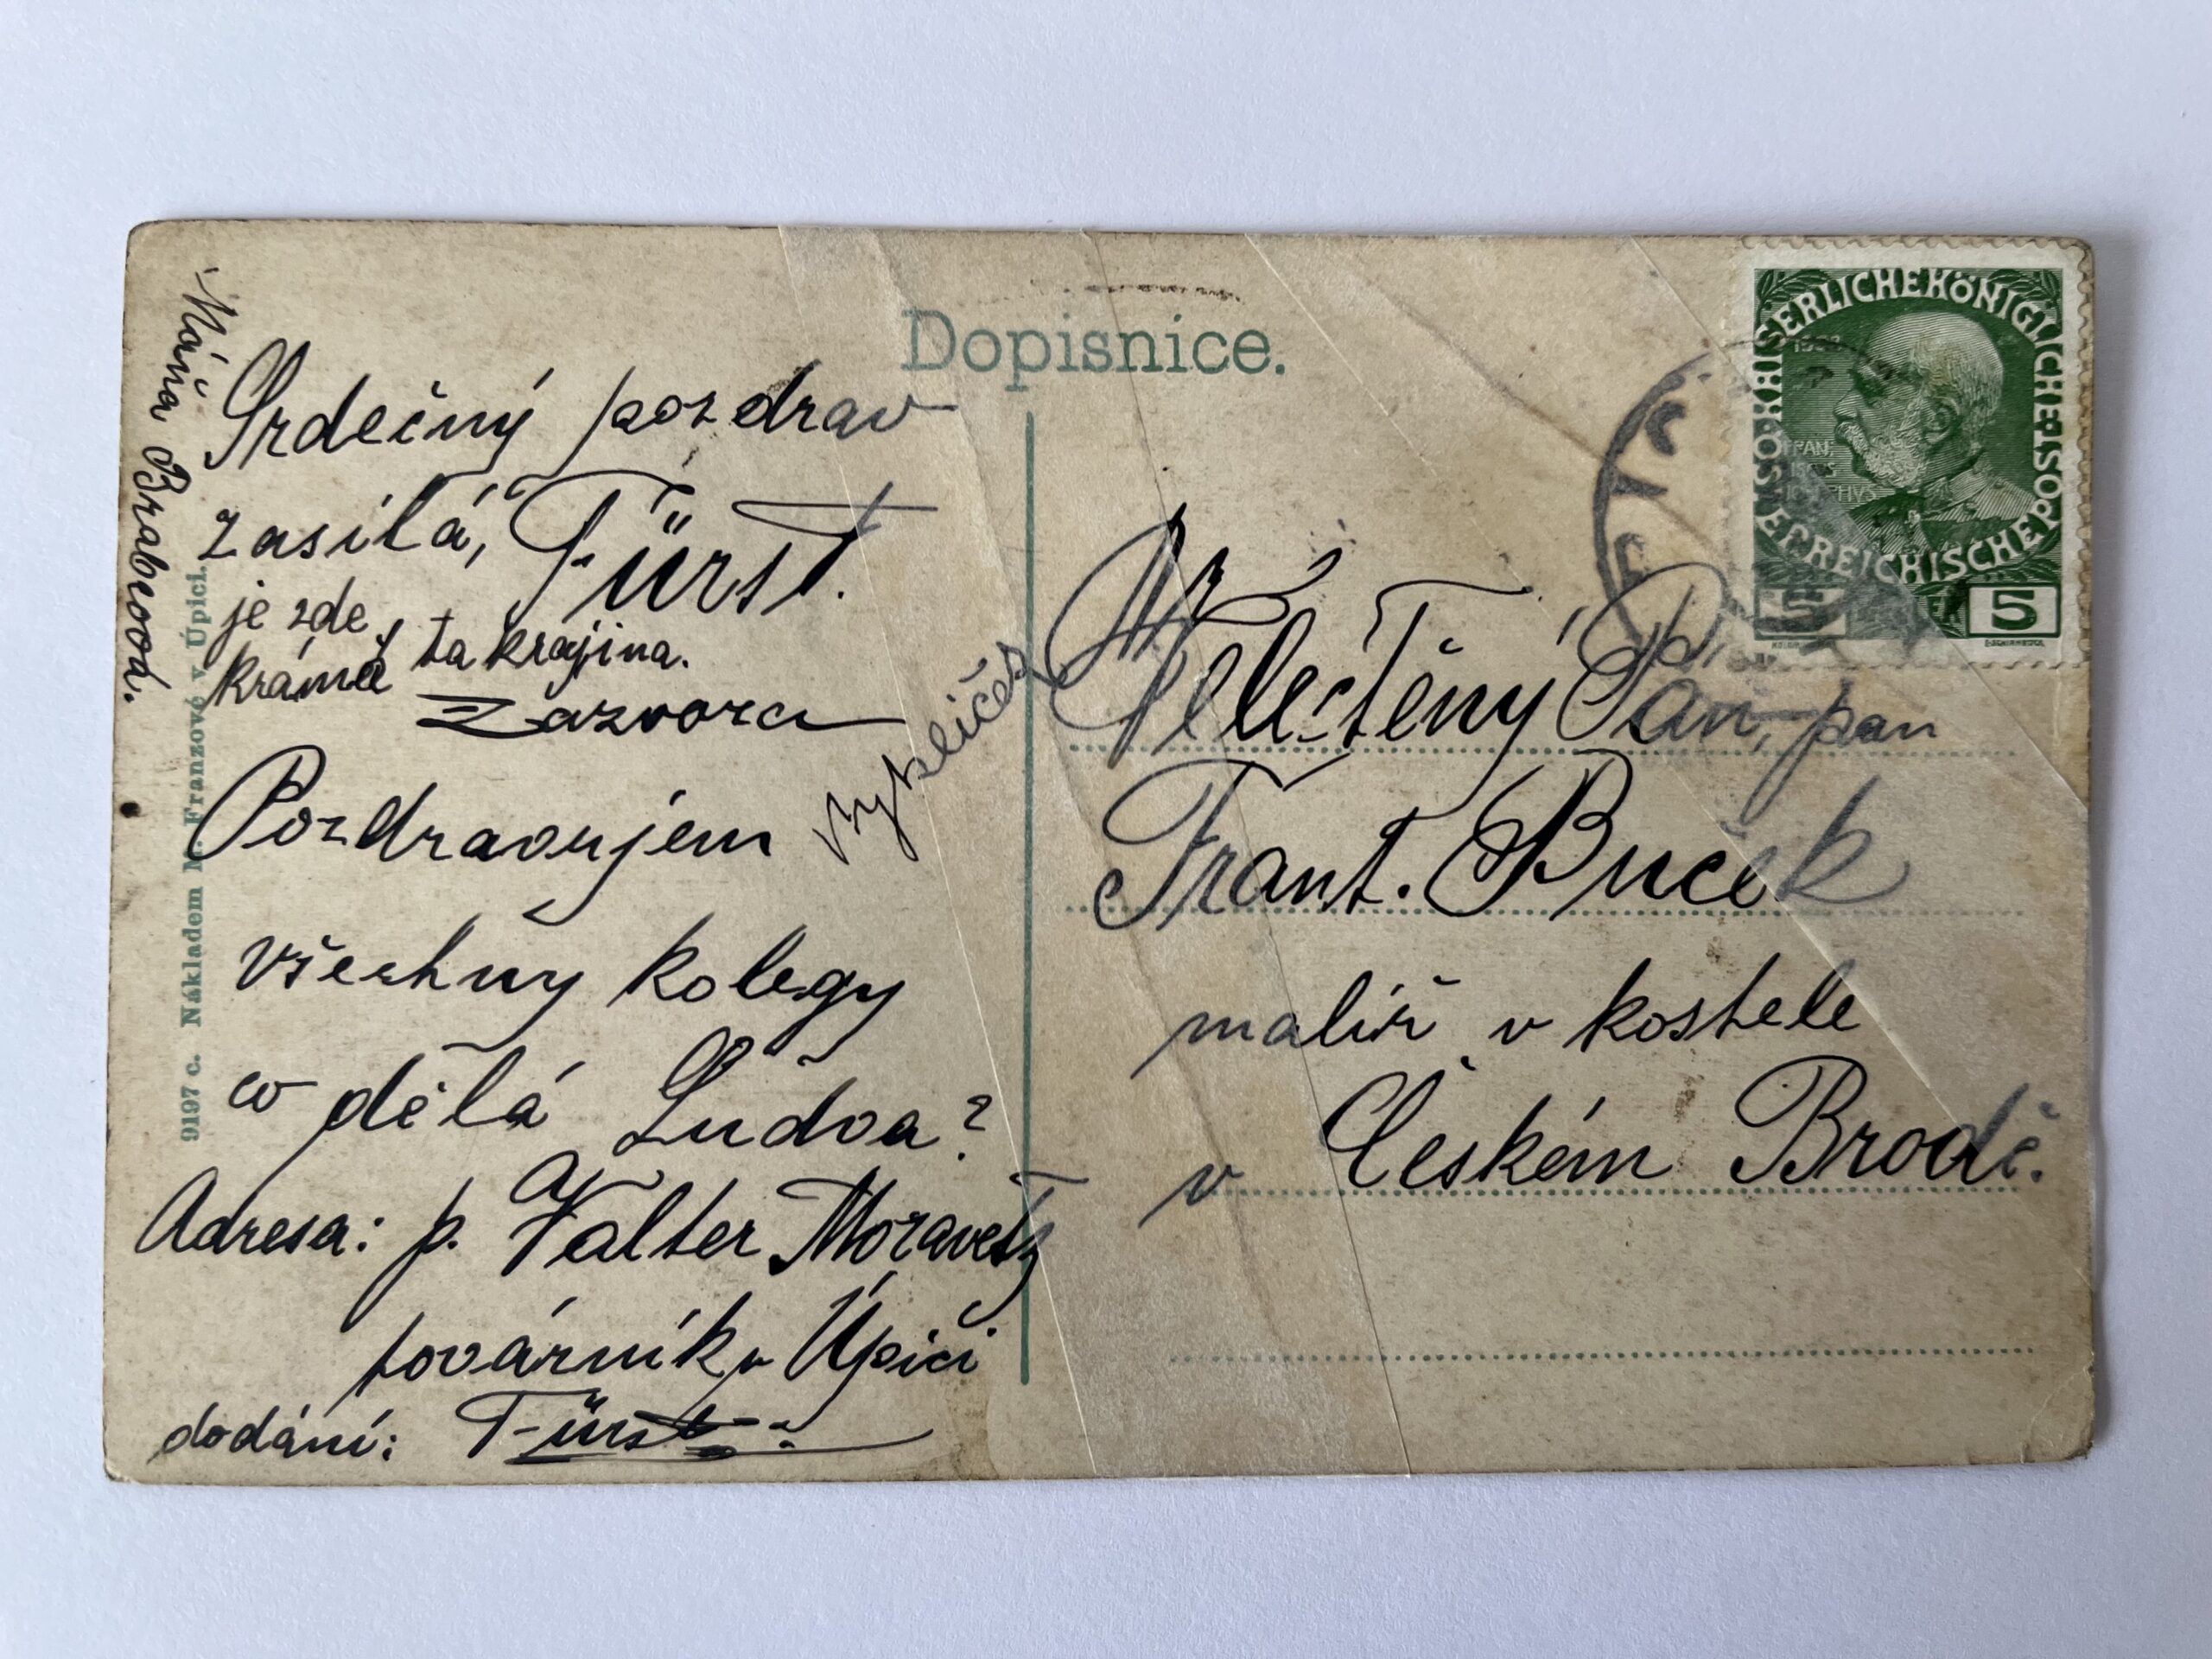 Dopisnice.
Srdečný pozdrav
zasílá, Fürst.
je zde
krámě ta krajina.
Zázvora
Pozdravujem
všechny kolegy
co dělá Ludva?
Adresa: p. Valter Moravetz
továrník v Úpici
dodání: Fürst
Máňa Brabcová.
9197 c. Nákladem M. Franzové v Úpici.
Velectěný Pan, pan
Frant. Buček
malíř v kostele
v Českém Brodě.
KAISERLICHE KÖNIGLICHE ÖSTERREICHISCHE POST
1908
FRAN.
IOSEPHVS
5
5